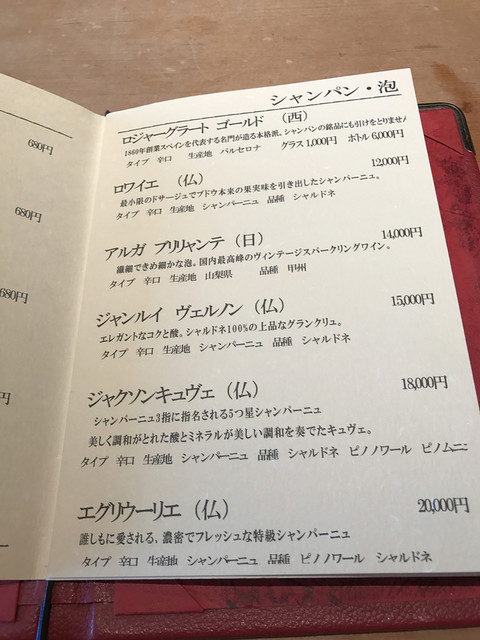 680円
680円
680円
円
シャンパン・泡
ロジャーグラート ゴールド (西)
1860年創業スペインを代表する名門が造る本格派。シャンパンの銘品にも引けをとりません
タイプ 辛口 生産地 バルセロナ グラス 1,000円 ボトル 6,000円
ロワイエ (仏) 12,000円
最小限のドサージュでブドウ本来の果実味を引き出したシャンパーニュ。
タイプ 辛口 生産地 シャンパーニュ 品種 シャルドネ
アルガ ブリャンテ (日) 14,000円
繊細できめ細かな泡。国内最高峰のヴィンテージスパークリングワイン。
タイプ 辛口 生産地 山梨県 品種 甲州
ジャンルイ ヴェルノン (仏) 15,000円
エレガントなコクと酸。シャルドネ100%の上品なグランクリュ。
タイプ 辛口 生産地 シャンパーニュ 品種 シャルドネ
ジャクソンキュヴェ (仏) 18,000円
シャンパーニュ3指に指名される5つ星シャンパーニュ
美しく調和がとれた酸とミネラルが美しい調和を奏でたキュヴェ。
タイプ 辛口 生産地 シャンパーニュ 品種 シャルドネ ピノノワール ピノムニエ
エグリウーリエ (仏) 20,000円
誰しもに愛される、濃密でフレッシュな特級シャンパーニュ
タイプ 辛口 生産地 シャンパーニュ 品種 ピノノワール シャルドネ